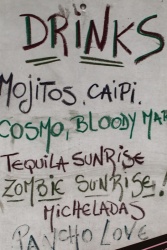 DRINKS
MOJITOS. CAIPI.
COSMO, BLOODY MAR
TEQUILA SUNRISE
ZOMBIE SUNRISE!
MICHELADAS
PANCHO LOVE